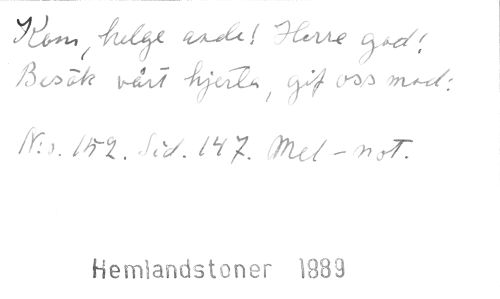 Kom, helge ande! Herre god!
Besök vårt hjerta, gif oss mod:
N:o. 152. Sid. 147. Mel-not.
Hemlandstoner 1889